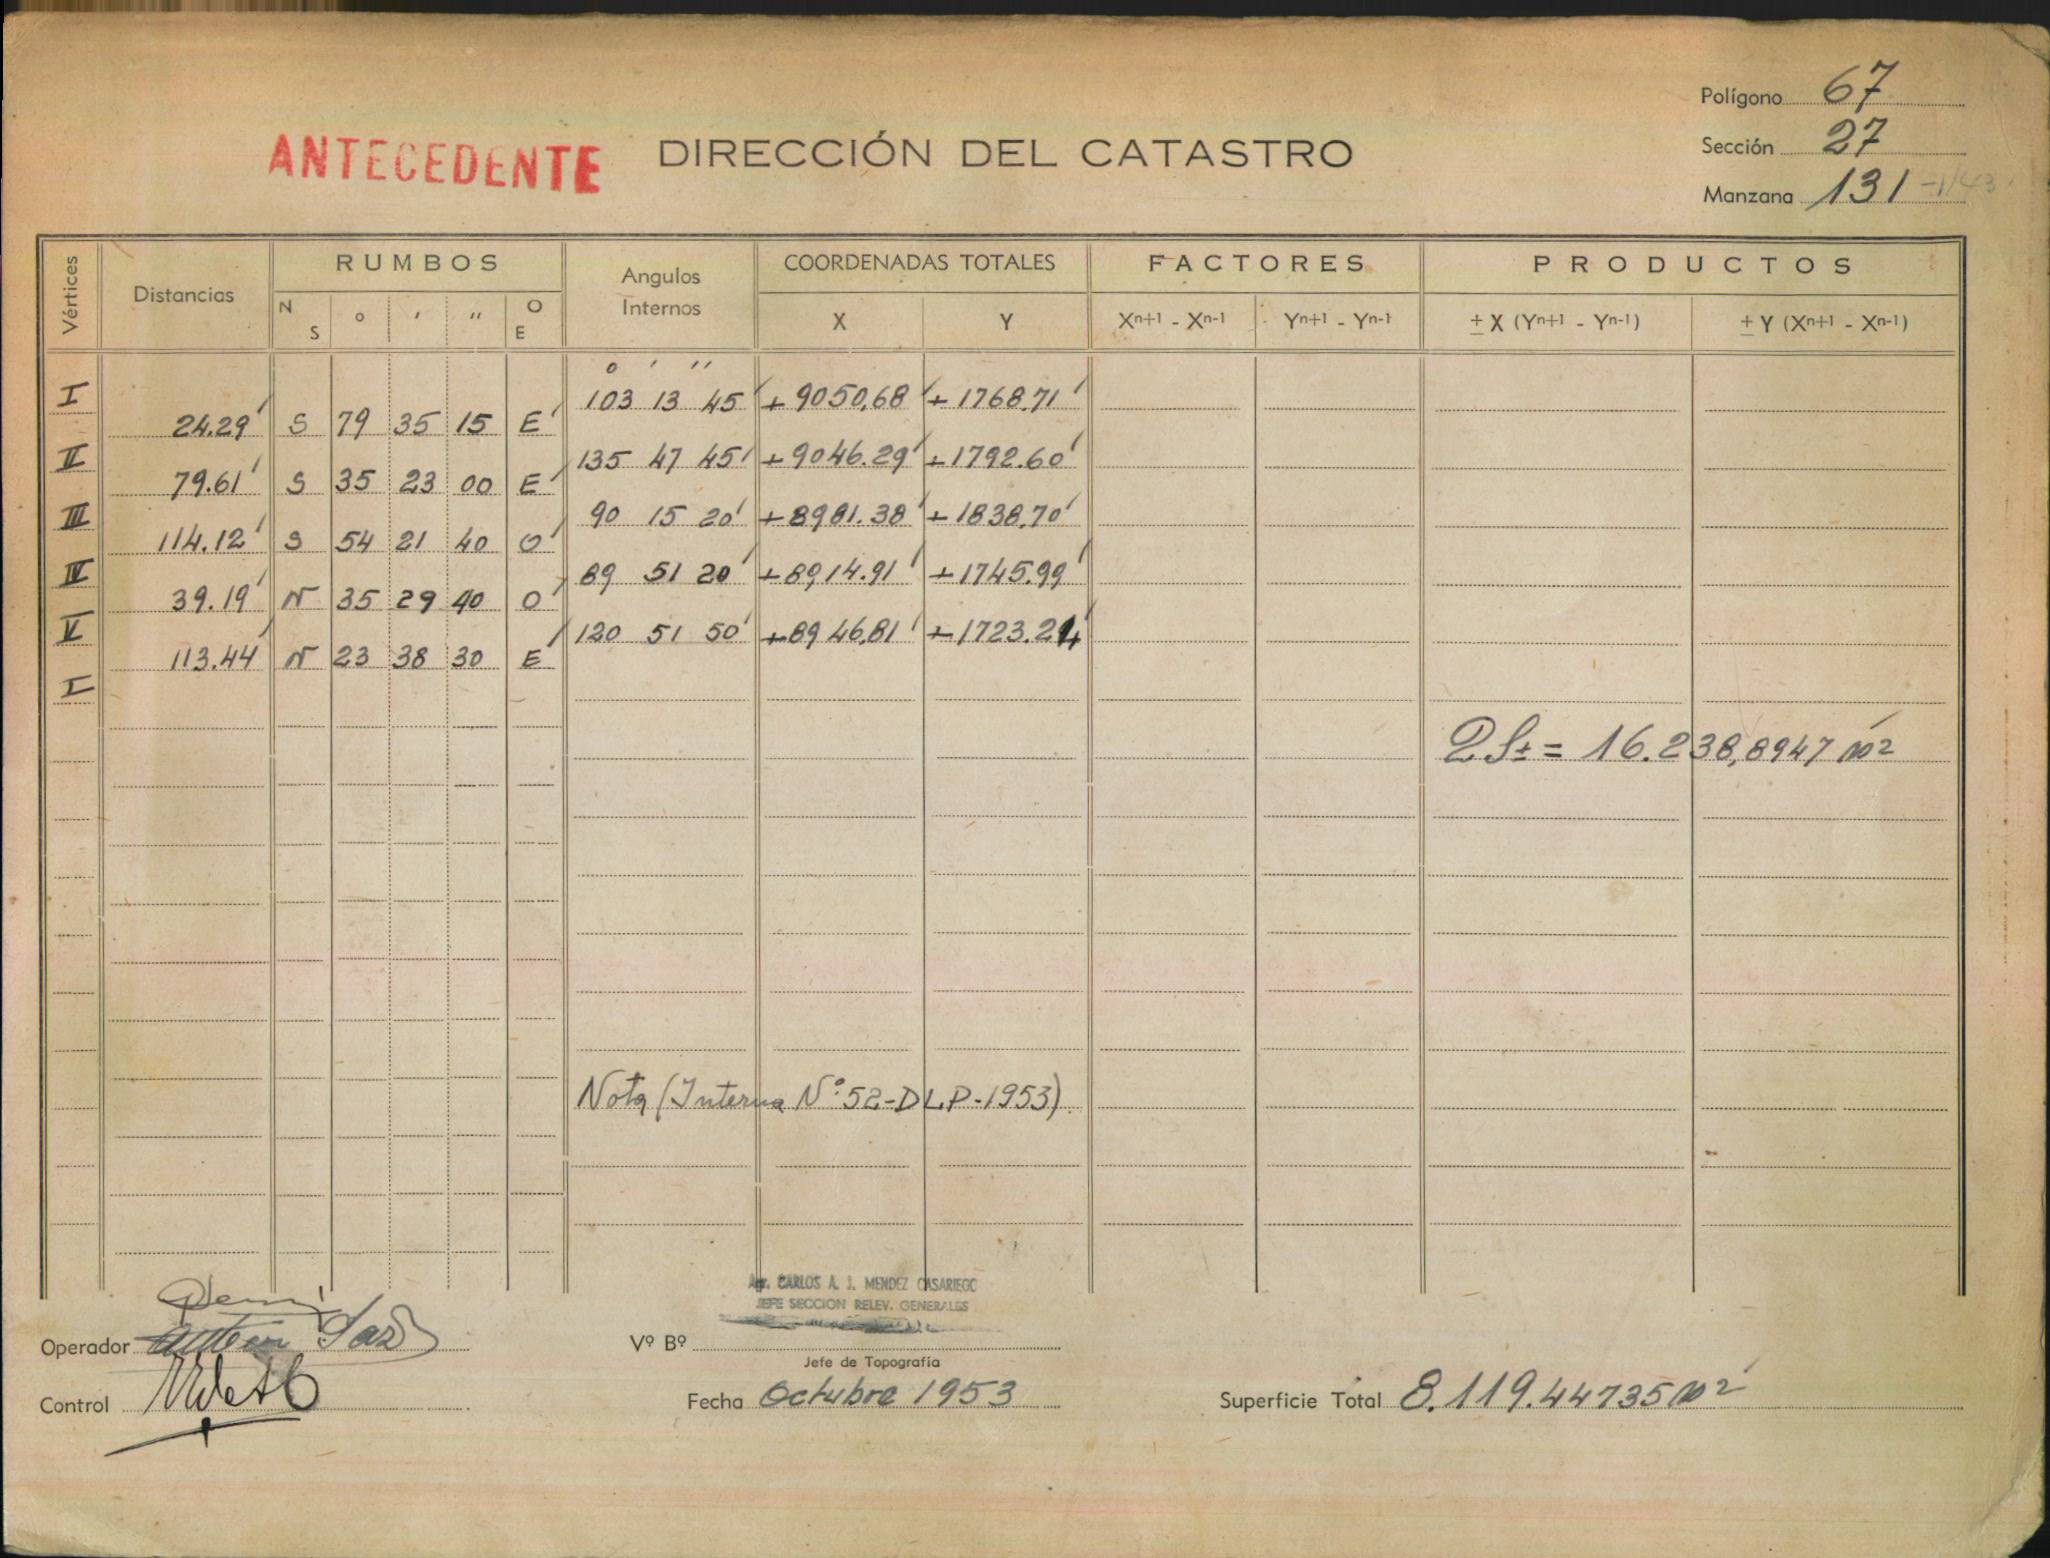 Polígono 67
ANTECEDENTE DIRECCIÓN DEL CATASTRO
Sección 27
Manzana 131
Vértices Distancias RUMBOS Angulos Internos COORDENADAS TOTALES FACTORES PRODUCTOS
N S ° ' '' O E X Y Xn+1 - Xn-1 Yn+1 - Yn-1 ± X (Yn+1 - Yn-1) ± Y (Xn+1 - Xn-1)
° ' ''
I 103 13 45 +9050,68 +1768.71
24.29 S 79 35 15 E
II 135 47 45 +9046.29 +1792.60
79.61 S 35 23 00 E
III 90 15 20 +8981.38 +1838.70
114.12 S 54 21 40 O
IV 89 51 20 +8914.91 +1745.99
39.19 N 35 29 40 O
V 120 51 50 +8946.81 +1723.24
113.44 N 23 38 30 E
I
2S± = 16.238,8947 m2
Nota (Interna Nº 52-DLP-1953).
CARLOS A. J. MENDEZ CASARIEGO
JEFE SECCION RELEV. GENERALES
Operador
Vº Bº
Jefe de Topografía
Control
Fecha Octubre 1953
Superficie Total 8.119.44735 m2